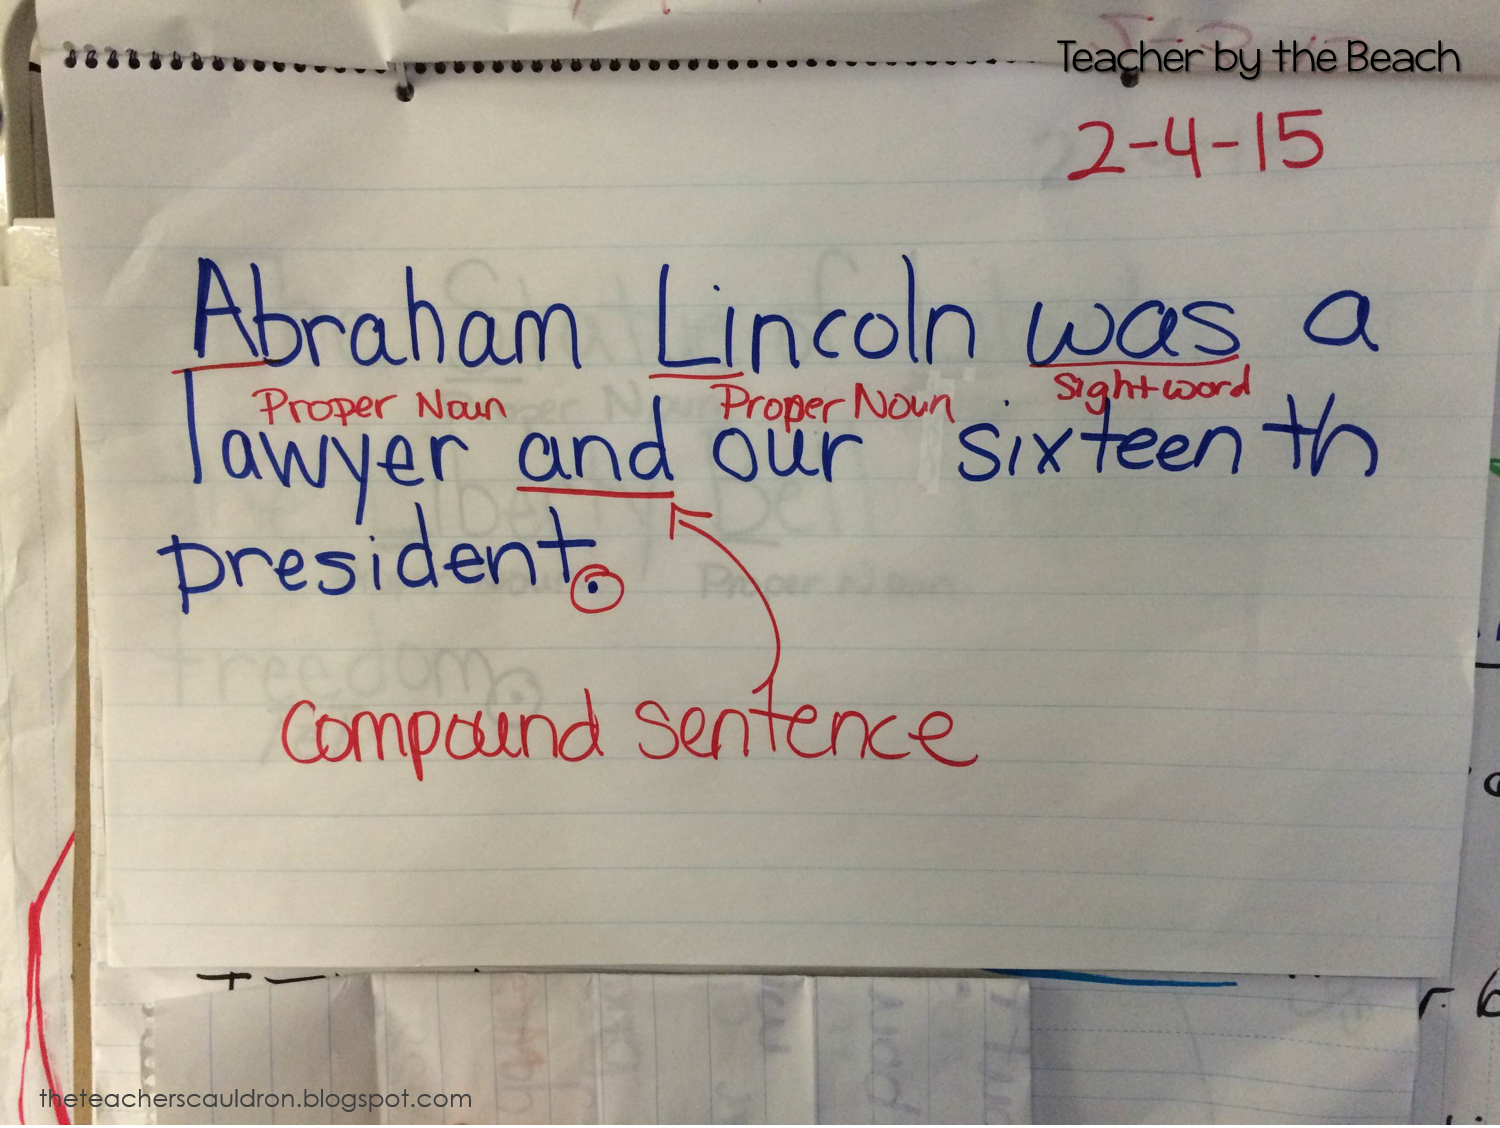 Teacher by the Beach
2-4-15
Abraham Lincoln was a
Proper Noun Proper Noun Sight word
lawyer and our sixteenth
president.
compound sentence
theteacherscauldron.blogspot.com